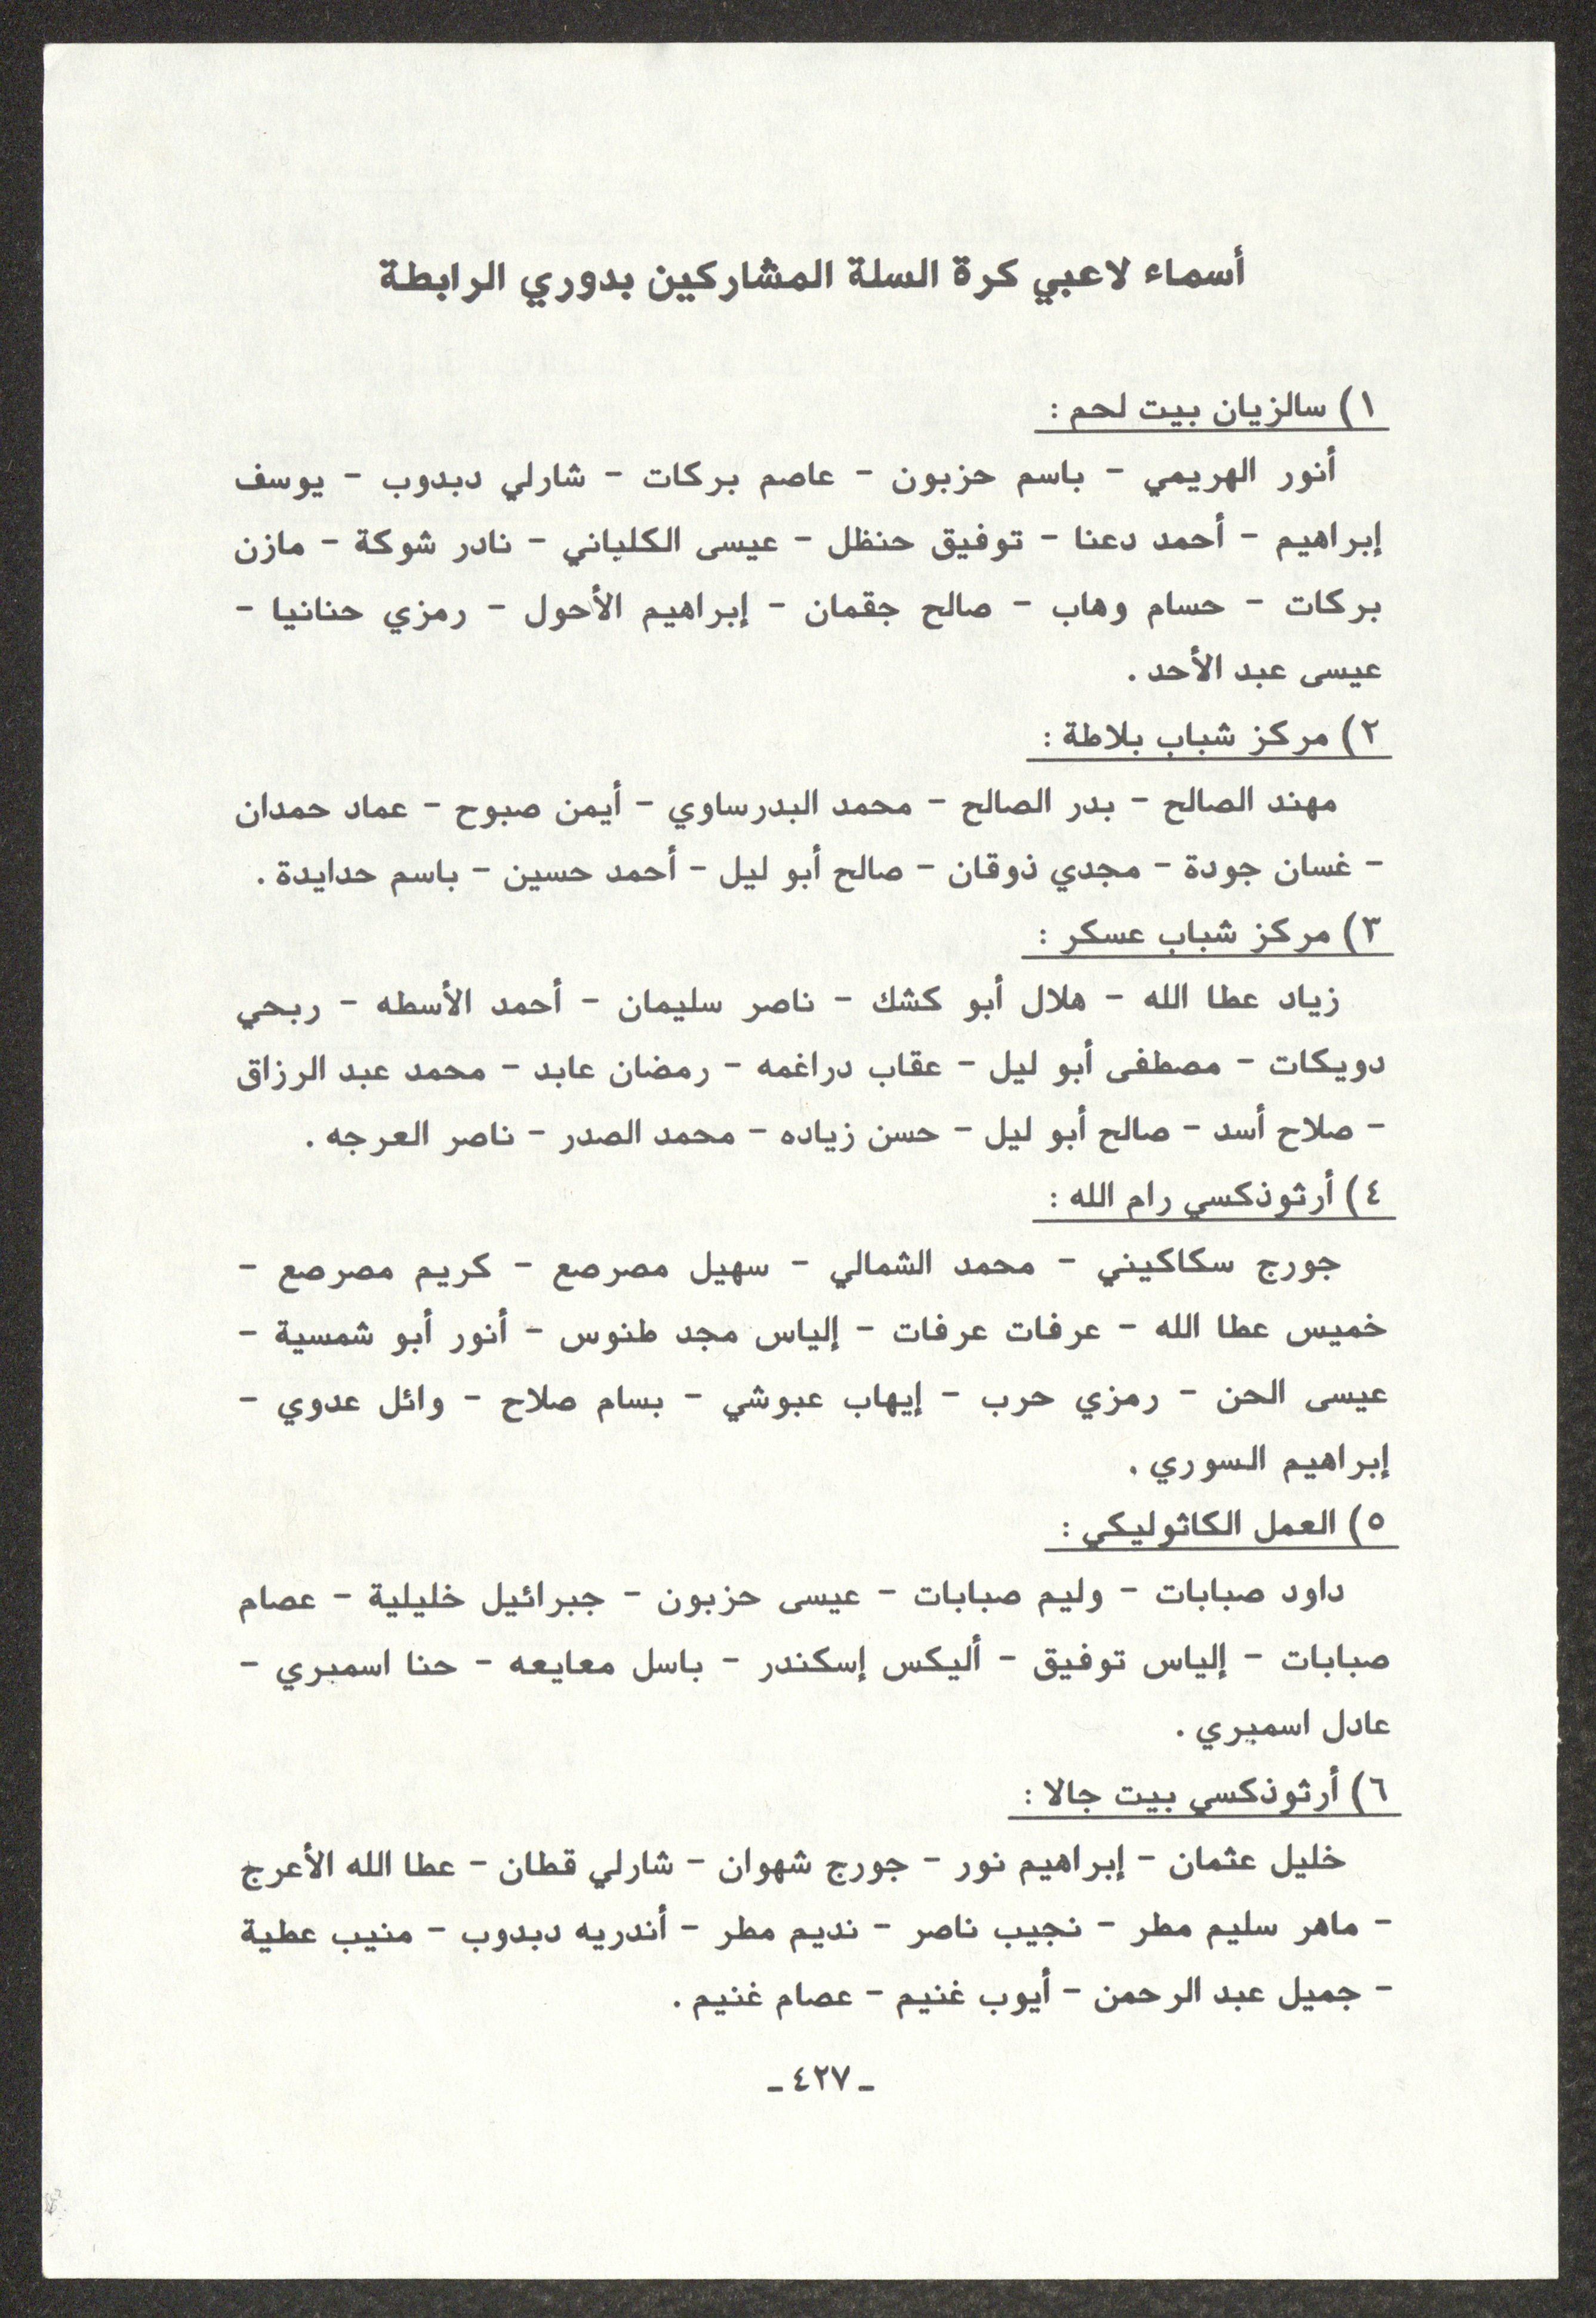 أسماء لاعبي كرة السلة المشاركين بدوري الرابطة
١) سالزيان بيت لحم :
أنور الهريمي - باسم حزبون - عاصم بركات - شارلي دبدوب - يوسف
إبراهيم - أحمد دعنا - توفيق حنظل - عيسى الكلباني - نادر شوكة - مازن
بركات - حسام وهاب - صالح جقمان - إبراهيم الأحول - رمزي حنانيا -
عيسى عبد الأحد .
٢) مركز شباب بلاطة :
مهند الصالح - بدر الصالح - محمد البدرساوي - أيمن صبوح - عماد حمدان
- غسان جودة - مجدي ذوقان - صالح أبو ليل - أحمد حسين - باسم حدايدة .
٣) مركز شباب عسكر :
زياد عطا الله - هلال أبو كشك - ناصر سليمان - أحمد الأسطه - ربحي
دويكات - مصطفى أبو ليل - عقاب دراغمه - رمضان عابد - محمد عبد الرزاق
- صلاح أسد - صالح أبو ليل - حسن زياده - محمد الصدر - ناصر العرجه .
٤) أرثوذكسي رام الله :
جورج سكاكيني - محمد الشمالي - سهيل مصرصع - كريم مصرصع -
خميس عطا الله - عرفات عرفات - إلياس مجد طنوس - أنور أبو شمسية -
عيسى الحن - رمزي حرب - إيهاب عبوشي - بسام صلاح - وائل عدوي -
إبراهيم السوري .
٥) العمل الكاثوليكي :
داود صبابات - وليم صبابات - عيسى حزبون - جبرائيل خليلية - عصام
صبابات - إلياس توفيق - أليكس إسكندر - باسل معايعه - حنا اسمبري -
عادل اسميري .
٦) أرثوذكسي بيت جالا :
خليل عثمان - إبراهيم نور - جورج شهوان - شارلي قطان - عطا الله الأعرج
- ماهر سليم مطر - نجيب ناصر - نديم مطر - أندريه دبدوب - منيب عطية
- جميل عبد الرحمن - أيوب غنيم - عصام غنيم .
ـ ٤٢٧ ـ